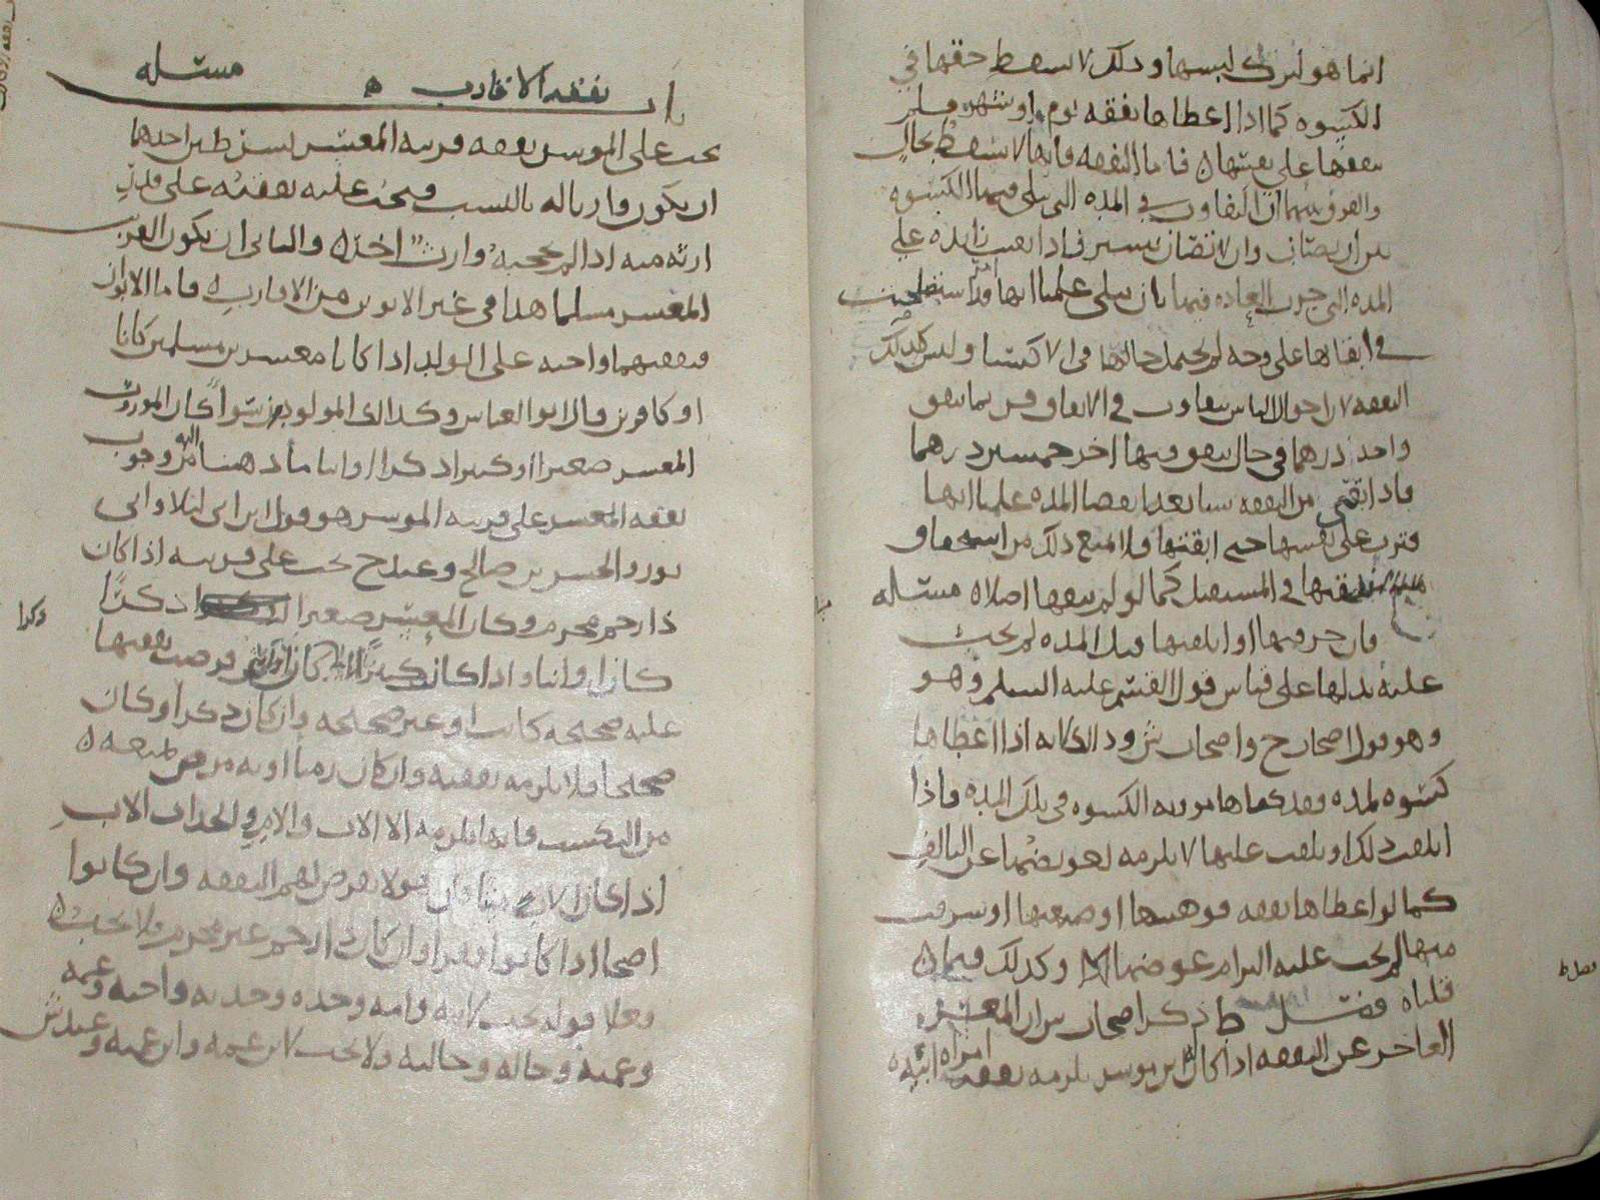 انما هو لترك لبسها وذلك لا يسقط حقها في
الكسوه كما اذا اعطاها نفقه يوم او شهر فلم
تنفقها على نفسها ٥ فاما النفقه فانها لا تسقط بحال
والفرق بينهما ان التفاوت في المده التى تبلى فيها الكسوه
بين ان تصان وان لا تصان يسير فاذا بقيت زايده على
المده التى جرت العاده فيها بان تبلى علمنا انها قد استفضلت
في ابقاها على وجه لم يحمل حالها في الاكتسا وليس كذلك
النفقه لان احوال الناس تتفاوت في الانفاق فربما ينفق
واحد درهما في حال ينفق فيها اخر خمسين درهما
فاذا بقى من النفقه شيا بعد انقضا المده علمنا انها
قترت على نفسها حتى ابقتها ولا يمنع ذلك من استحقاق
نفقتها في المستقبل كما لو لم تنفقها اصلا ٥ مسئله
فان خرقتها او اتلفتها قبل المده لم يجب
عليه بدلها على قياس قول القسم عليه السلم وهو
وهو قول اصحاب ح واصحاب ش وذلك لانه اذا اعطاها
كسوه لمده فقد كفاها مونه الكسوه في تلك المده فاذا
اتلفت ذلك او تلفت عليها لا يلزمه تعويضها عن التالف
كما لو اعطاها نفقه فوهبتها او ضيعتها او سرقت
منها لم يجب عليه البرامر عوضها وكذلك فيما ٥
قلناه فصل ط ذكر اصحاب ش ان المعسر
العاجز عن النفقه اذا كان له ابن موسر يلزمه نفقه امراه ابيه ٥
فصل ط
باب نفقه الاقارب ٥ مسئله
يجب على الموسر نفقه قريبه المعسر بشرطين احدهما
ان يكون وارثا له بالنسب ويجب عليه نفقته على قدر
ارثه منه اذا لم يحجبه وارث اخر ٥ والثانى ان يكون القريب
المعسر مسلما هذا في غير الابوين من الاقارب ٥ فاما الابوان
فنفقتهما واجبه على الولد اذا كانا معسرين مسلمين كانا
او كافرين قال ابو العباس وكذلك المولودين سواً كان الموروث
المعسر صغيرا او كبيرا ذكرا او انثا ما ذهبنا اليه من وجوب
نفقه المعسر على قريبه الموسر هو قول ابن ابى ليلا وابى
ثور والحسن بن صالح وعند ح يجب على قريبه اذا كان
ذا رحم محرم وكان المعسر صغيرا ذكرًا
وكذا
كان او انثا واذا كان كبيرًا كان فرضت نفقتها
عليه صحيحه كانت او غير صحيحه وان كان ذكرا وكان
صحيحا فلا يلزمه نفقته وان كان زمنا او به مرض يمنعه ٥
من التكسب فانها تلزمه الا الاب والام والجد اب الاب
اذا كان الاب ميتا فان هولا يفرض لهم النفقه وان كانوا
اصحا اذا كانوا فقرا وان كان ذا رحم غير محرم فلا يجب ٥
فعلا قوله يجب لابيه وامه وجده وجدته واخيه وعمه
وعمته وخاله وخالته ولا يجب لابن عمه وابن عمته وعند ش